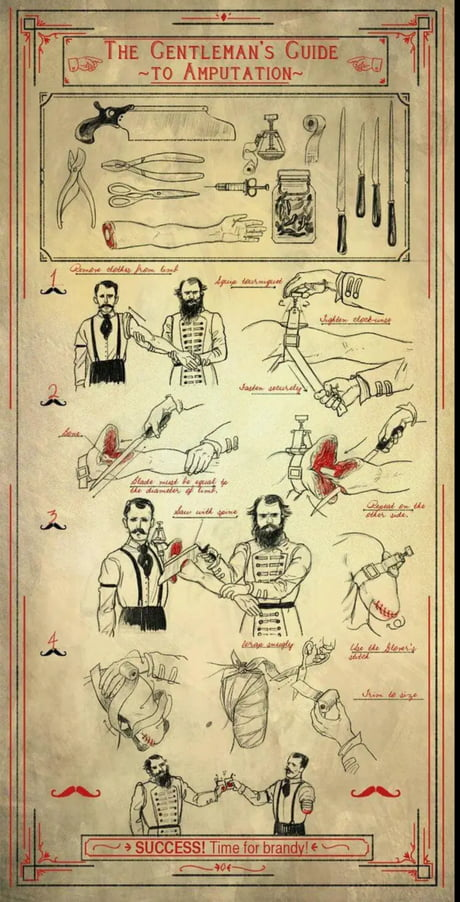 THE GENTLEMAN'S GUIDE
~TO AMPUTATION~
1
Remove clothes from limb
Equip tourniquet
Tighten clock-wise
Fasten securely
2
Bone
Blade must be equal to
the diameter of limb.
Repeat on the
other side.
3
Saw with spine
4
Wrap snugly
Use the Glover's
stitch
Trim to size
SUCCESS! Time for brandy!